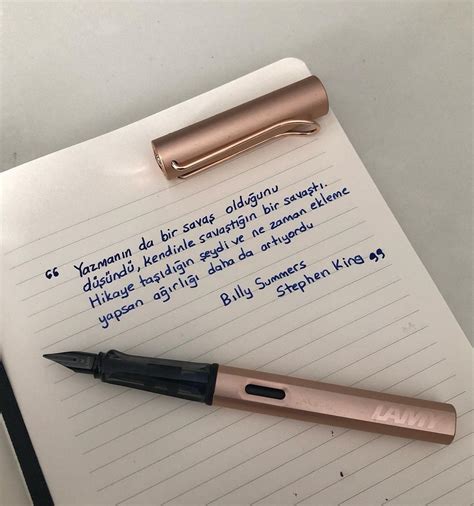 “ Yazmanın da bir savaş olduğunu
düşündü, kendinle savaştığın bir savaştı.
Hikaye taşıdığın şeydi ve ne zaman ekleme
yapsan ağırlığı daha da artıyordu
Billy Summers
Stephen King ”
LAMY